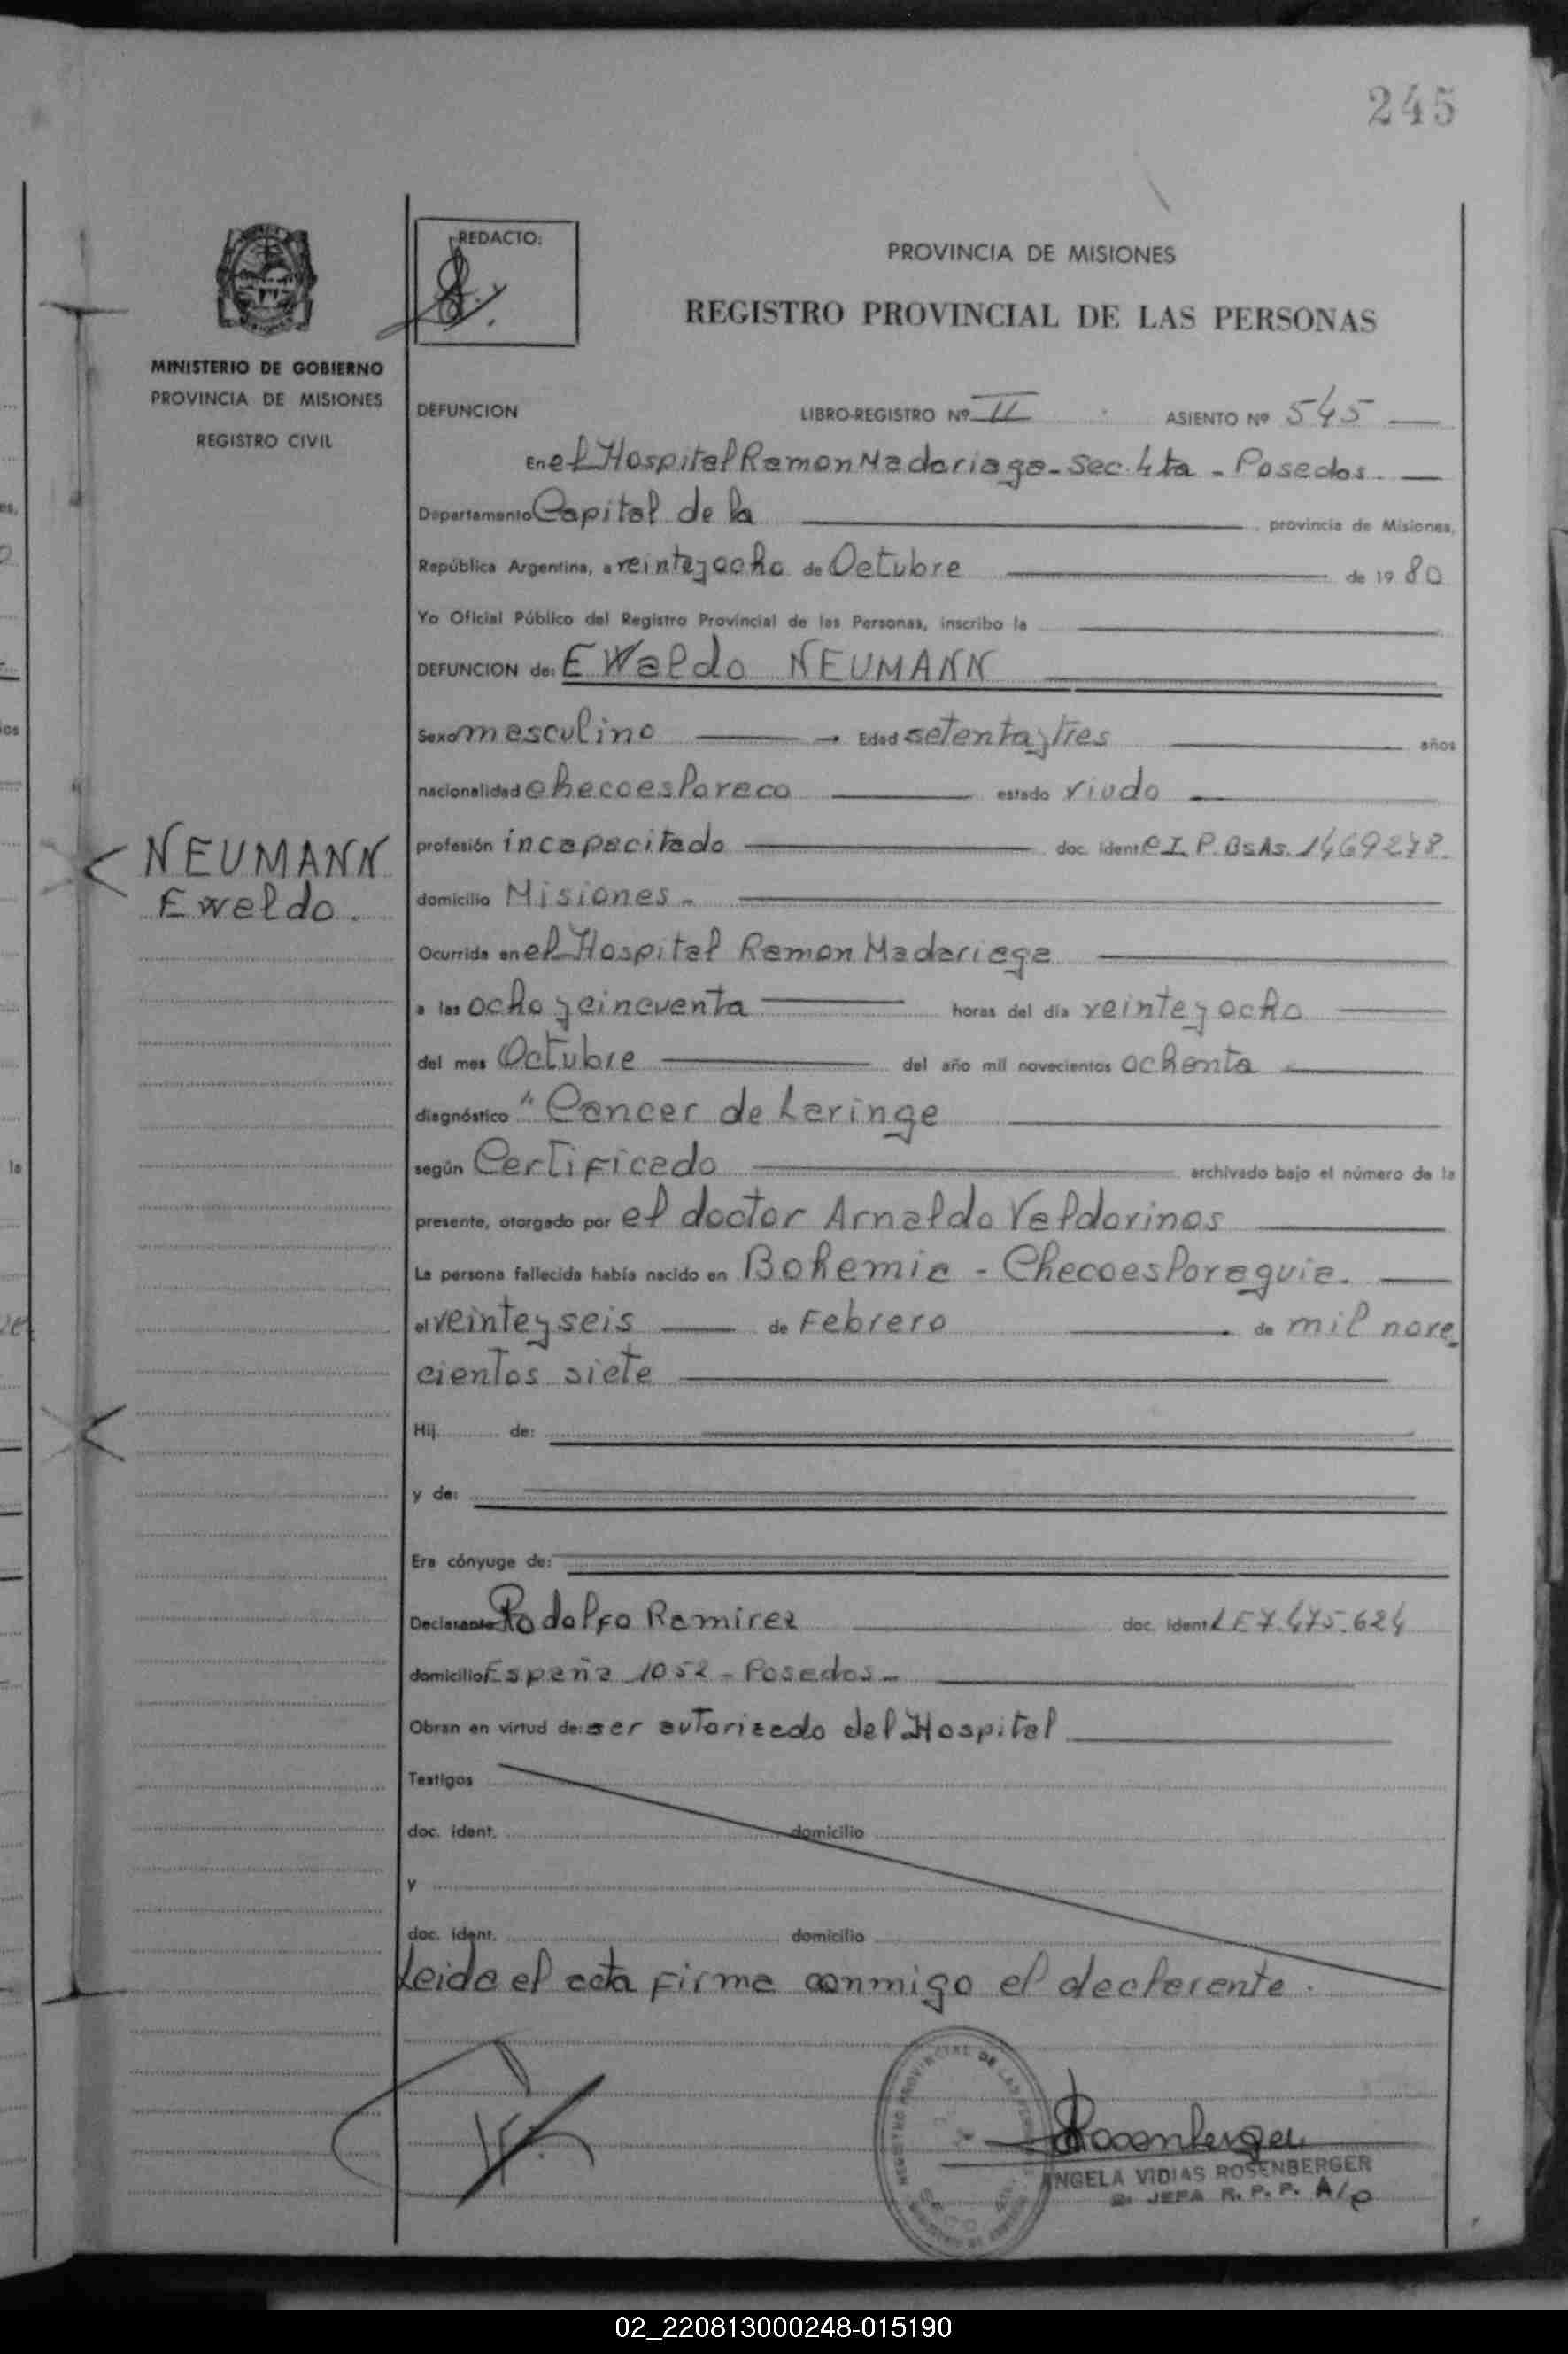 245
REDACTO:
PROVINCIA DE MISIONES
REGISTRO PROVINCIAL DE LAS PERSONAS
MINISTERIO DE GOBIERNO
PROVINCIA DE MISIONES
REGISTRO CIVIL
DEFUNCION LIBRO-REGISTRO Nº II ASIENTO Nº 545
En el Hospital Ramon Madariaga - Sec. 4ta - Posadas.
Departamento Capital de la provincia de Misiones,
República Argentina, a veinteyocho de Octubre de 19 80
Yo Oficial Público del Registro Provincial de las Personas, inscribo la
DEFUNCION de: EWaldo NEUMANN
Sexo masculino Edad setentaytres años
nacionalidad checoeslovaco estado viudo
NEUMANN
Ewaldo.
profesión incapacitado doc. ident. C.I. P. BsAs. 1469278.
domicilio Misiones.-
Ocurrida en el Hospital Ramon Madariaga
a las ocho y cincuenta horas del día veinteyocho
del mes Octubre del año mil novecientos ochenta
diagnóstico " Cancer de Laringe
según Certificado archivado bajo el número de la
presente, otorgado por el doctor Arnaldo Valdovinos
La persona fallecida había nacido en Bohemia - Checoeslovaquia.
el veinteyseis de Febrero de mil nove
cientos siete
Hij de:
y de:
Era cónyuge de:
Declarante Rodolfo Ramirez doc. ident. LE 7.475.624
domicilio España 1052 - Posadas.-
Obran en virtud de: ser autorizado del Hospital
Testigos
doc. ident. domicilio
y
doc. ident. domicilio
Leida el acta firma conmigo el declarante.
Rosenberger
ANGELA VIDIAS ROSENBERGER
JEFA R. P. P. A/c
02_220813000248-015190